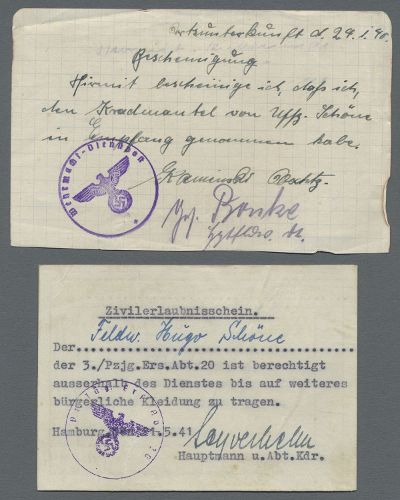 Ortsunterkunft d. 29.1.40.
Bescheinigung
Hirmit bescheinige ich, daß ich,
den Kradmantel von Uffz. Schöne
in Empfang genommen habe.
Wehrmacht-Dienstpost
Kaminski
Bonke
Zivilerlaubnisschein.
Feldw. Hugo Schöne
Der
der 3./Pzjg.Ers.Abt.20 ist berechtigt
ausserhalb des Dienstes bis auf weiteres
bürgerliche Kleidung zu tragen.
Hamburg, .5.41
Hauptmann u.Abt.Kdr.